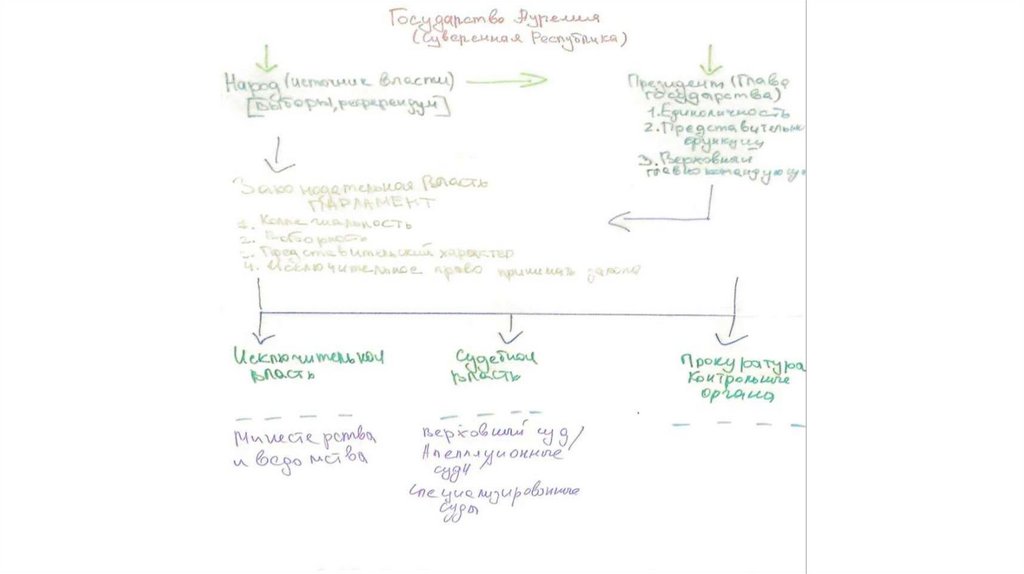 Государство Аурелия
(Суверенная Республика)
Народ (источник власти)
[выборы, референдум]
Президент (Глава
государства)
1. Единоличность
2. Представительн
функции
3. Верховный
главнокомандующ
Законодательная Власть
ПАРЛАМЕНТ
1. Коллегиальность
2. Выборность
3. Представительский характер
4. Исключительное право принимать закона
Исключительной
власть
Судебной
власть
Прокуратура
Контрольные
органа
Министерства
и ведомства
Верховный суд/
Апелляционные
суды
Специализированные
суды